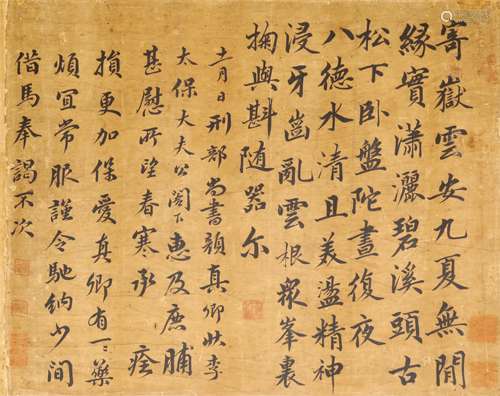 寄嶽雲安九夏無閒
緣實瀟灑碧溪頭古
松下卧盤陀晝復夜
八德水清且美盪精神
浸牙齒亂雲根衆峯裏
掬與斟随器尔
十一月日刑部尚書顔真卿狀李
太保大夫公閤下惠及庶脯
甚慰所望春寒承痊
損更加保愛真卿有二藥
煩冝常服謹令馳納少間
借馬奉謁不次